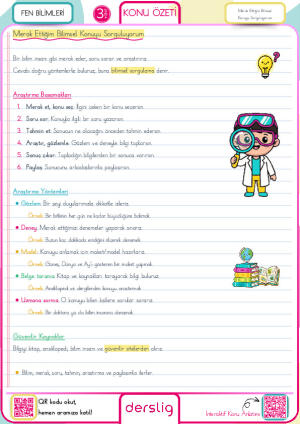 FEN BİLİMLERİ
3. SINIF
KONU ÖZETİ
Merak Ettiğim Bilimsel
Konuyu Sorguluyorum
Merak Ettiğim Bilimsel Konuyu Sorguluyorum
Bir bilim insanı gibi merak eder, soru sorar ve araştırırız.
Cevabı doğru yöntemlerle buluruz, buna bilimsel sorgulama denir.
Araştırma Basamakları
1. Merak et, konu seç: İlgini çeken bir konu seçersin.
2. Soru sor: Konuyla ilgili bir soru yazarsın.
3. Tahmin et: Sonucun ne olacağını önceden tahmin edersin.
4. Araştır, gözlemle: Gözlem ve deneyle bilgi toplarsın.
5. Sonuç çıkar: Topladığın bilgilerden bir sonuca varırsın.
6. Paylaş: Sonucunu arkadaşlarınla paylaşırsın.
Araştırma Yöntemleri
Gözlem: Bir şeyi duyularımızla dikkatle izleriz.
Örnek: Bir bitkinin her gün ne kadar büyüdüğüne bakmak.
Deney: Merak ettiğimizi deneyerek yaparak sınarız.
Örnek: Buzun kaç dakikada eridiğini ölçerek denemek.
Model: Konuyu anlamak için maket/model hazırlarız.
Örnek: Güneş, Dünya ve Ay'ı gösteren bir maket yapmak.
Belge tarama: Kitap ve kaynakları tarayarak bilgi buluruz.
Örnek: Ansiklopedi ve dergilerden konuyu araştırmak.
Uzmana sorma: O konuyu bilen kişilere sorular sorarız.
Örnek: Bir doktora ya da bilim insanına danışmak.
Güvenilir Kaynaklar
Bilgiyi kitap, ansiklopedi, bilim insanı ve güvenilir sitelerden alırız.
Bilim, merak, soru, tahmin, araştırma ve paylaşımla ilerler.
QR kodu okut,
hemen aramıza katıl!
derslig
İnteraktif Konu Anlatımı